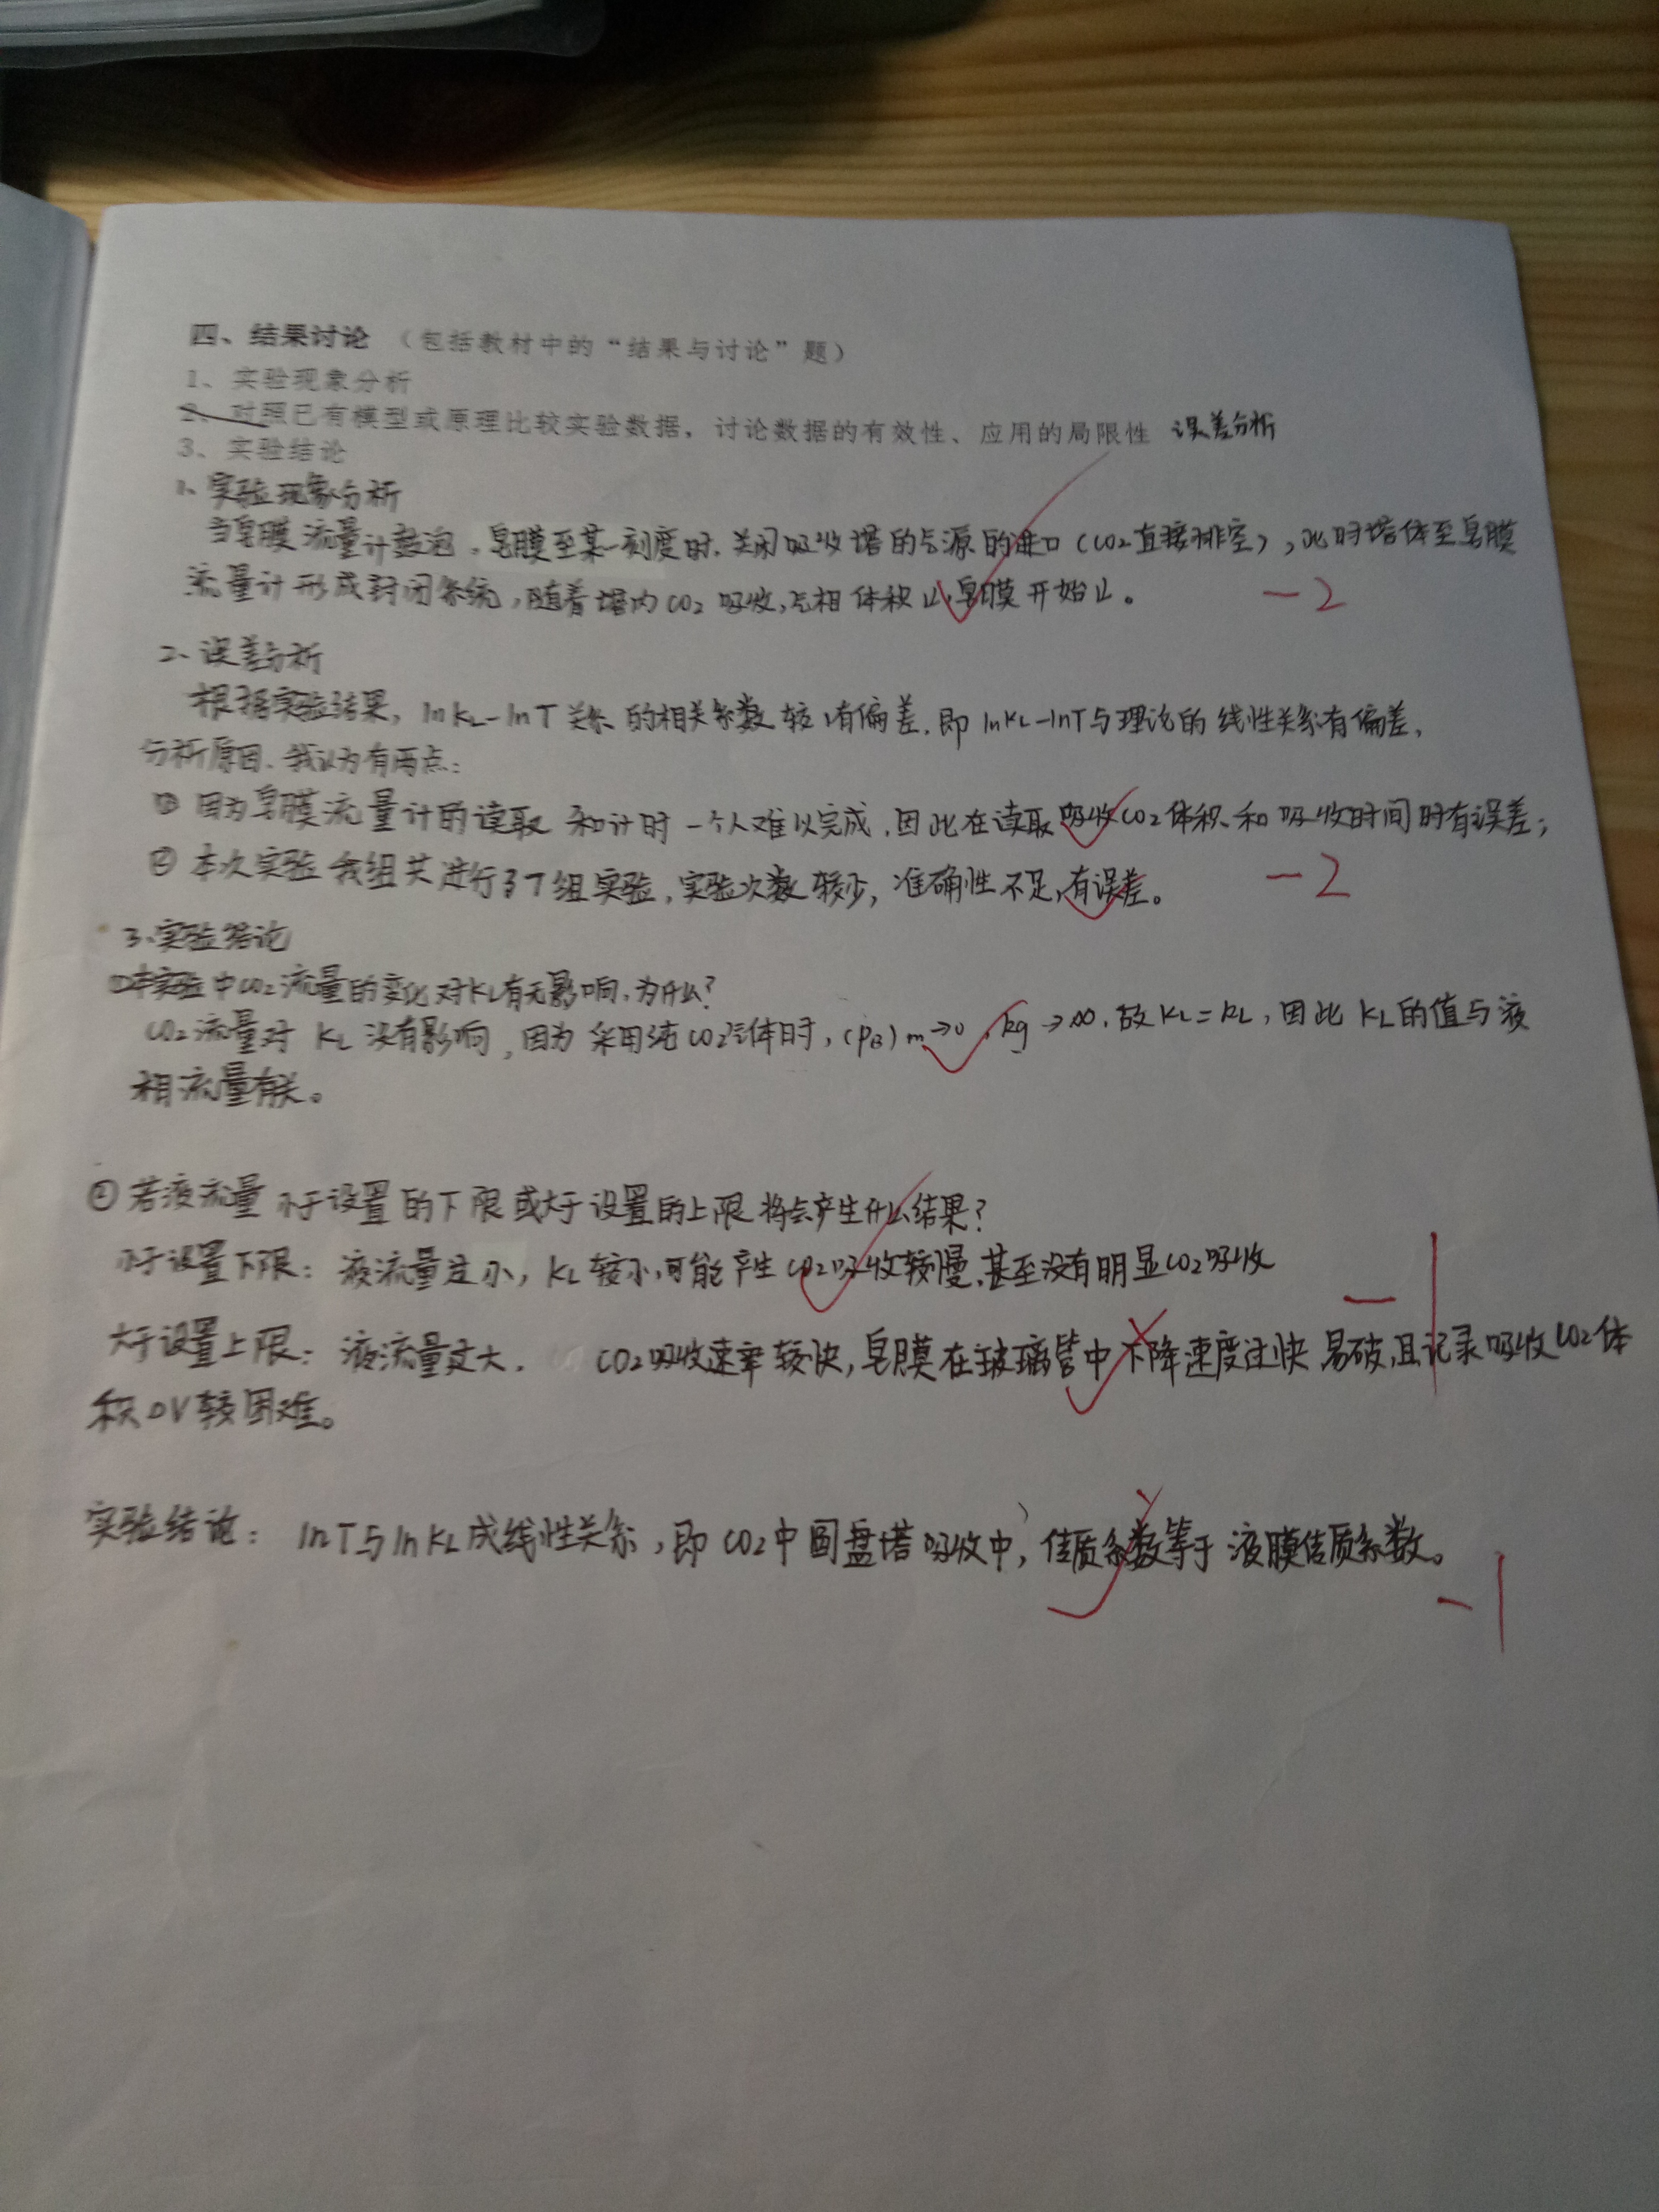 四、结果讨论 （包括教材中的“结果与讨论”题）
1、实验现象分析
2、对照已有模型或原理比较实验数据，讨论数据的有效性、应用的局限性 误差分析
3、实验结论
1、实验现象分析
当皂膜流量计鼓泡，皂膜至某一刻度时，关闭吸收塔的气源的进口（CO2直接排空），此时塔体至皂膜
流量计形成封闭系统，随着塔内CO2吸收，气相体积↓，皂膜开始↓。
-2
2、误差分析
根据实验结果，lnKL-lnT关系的相关系数较 有偏差，即lnKL-lnT与理论的线性关系有偏差，
分析原因，我认为有两点：
① 因为皂膜流量计的读取和计时一个人难以完成，因此在读取吸收CO2体积和吸收时间时有误差；
② 本次实验我组共进行了7组实验，实验次数较少，准确性不足，有误差。
-2
3、实验结论
①本实验中CO2流量的变化对KL有无影响，为什么？
CO2流量对KL没有影响，因为采用纯CO2气体时，(PB)m→0，kg→∞，故KL=kL，因此KL的值与液
相流量有关。
② 若液流量小于设置的下限或大于设置的上限将会产生什么结果？
小于设置下限：液流量过小，KL较小，可能产生CO2吸收较慢，甚至没有明显CO2吸收
-1
大于设置上限：液流量过大， CO2吸收速率较快，皂膜在玻璃管中下降速度过快易破，且记录吸收CO2体
积ΔV较困难。
实验结论：lnT与lnKL成线性关系，即CO2中圆盘塔吸收中，传质系数等于液膜传质系数。
-1